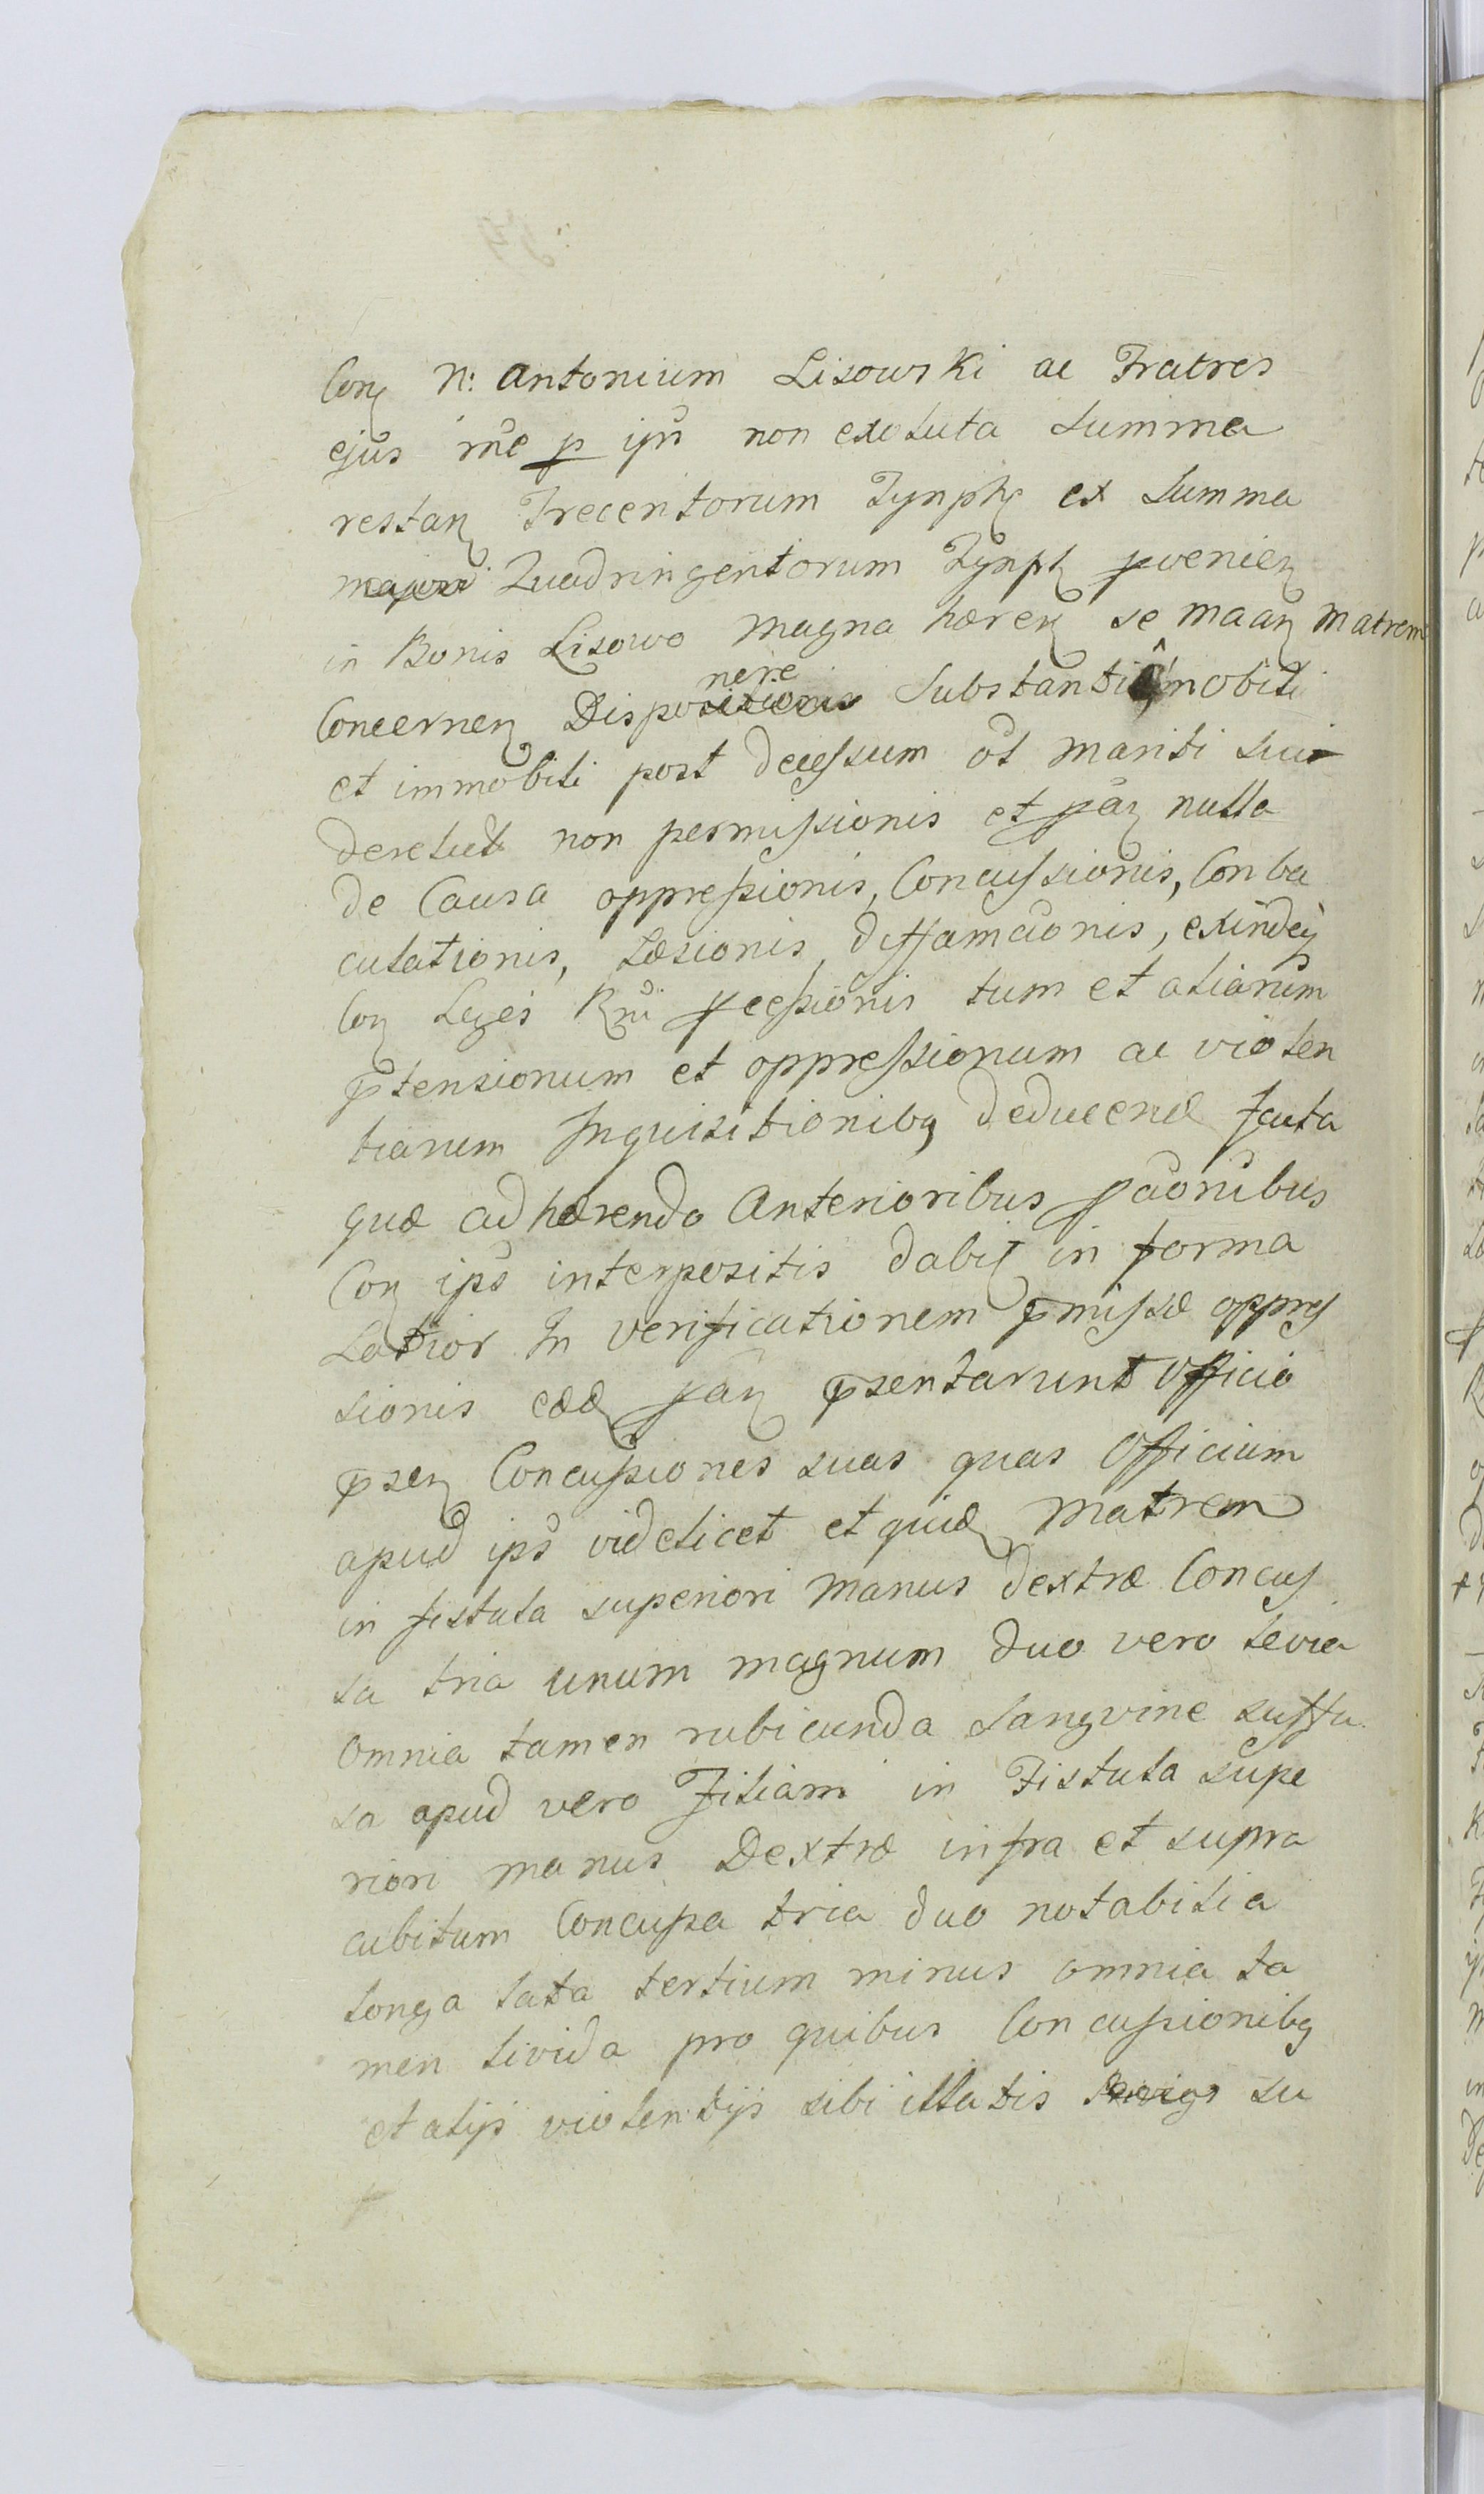 Con N: Antonium Lisowski ac Fratres
ejus rñe p ipñ non exoluta Summa
restan Trecentorum Tynph ex Summa
majori Quadringentorum Tynph pvenien
in Bonis Lisowo Magna hæren se maan Matrem
nere
Concernen Dispositionis Substantiâ mobili
et immobili post decessum ol mariti sui
derelict non permissionis et pan nulla
de Causa oppressionis, Concussionis, Conba
culationis, Læsionis, diffamãonis, exindeq
Con Leges Rni pcessionis tum et aliarum
ptensionum et oppressionum ac violen
tiarum Inquisitionibq deducend facta
quæ adhærendo Anterioribus pãonibus
Con ips interpositis dabit in forma
Latior In verificationem pmissæ oppres
sionis eæd pan psentarunt Officio
psen Concussiones suas quas Officium
apud ips videlicet et quid Matrem
in fistula superiori manus dextræ Concus
sa tria unum magnum duo vero levia
omnia tamen rubicunda Sangvine suffu
sa apud vero Filiam in Fistula supe
riori manus Dextræ infra et supra
cubitum Concussa tria duo notabilia
longa lata tertium minus omnia ta
men livida pro quibus Concussionibq
et alijs violentijs sibi illatis su